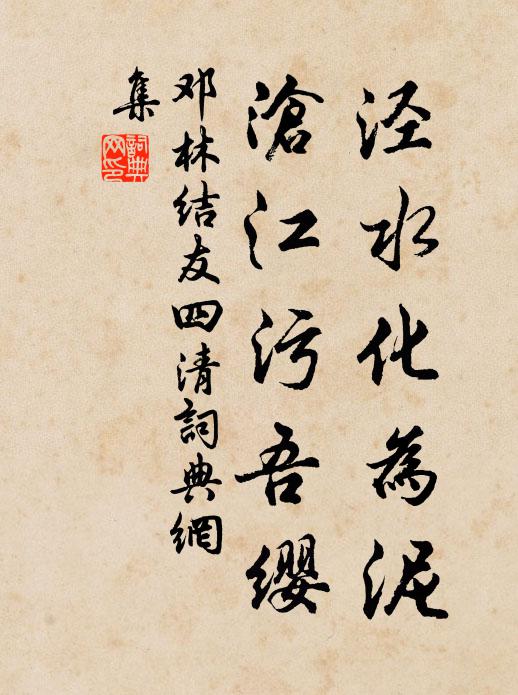 泾水化為泥
滄江污吾缨
邓林结友四清詞典網
集
詞典
网印